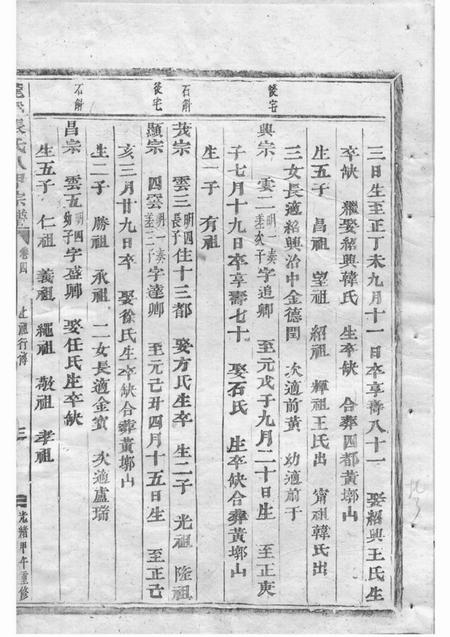 三日生至正丁未九月十一日卒享壽八十一 娶紹興王氏生
卒缺 繼娶紹興韓氏 生卒缺 合葬四都黃墎山
生五子 昌祖 望祖 紹祖 輝祖王氏出 甯祖韓氏出
三女長適紹興治中金德閏 次適前黃 幼適前于
後宅
興宗 雲二 字追卿 至元戊子九月二十日生 至正庚
子七月十九日卒享壽七十 娶石氏 生卒缺合葬黃墎山
生一子 有祖
石斛
茂宗 雲三 明四長子 住十三都 娶方氏生卒 生二子 光祖 隆祖
後宅
顯宗 四雲 字達卿 至元己丑四月十五日生 至正己
亥三月廿九日卒 娶徐氏生卒缺合葬黃墎山
生二子 勝祖 承祖 二女長適金寶 次適盧瑞
石斛
昌宗 雲五 明四幼子 字盛卿 娶任氏生卒缺
生五子 仁祖 義祖 繩祖 敬祖 孝祖
張氏八甲宗譜 卷四 行傳 三 光緒甲午重修